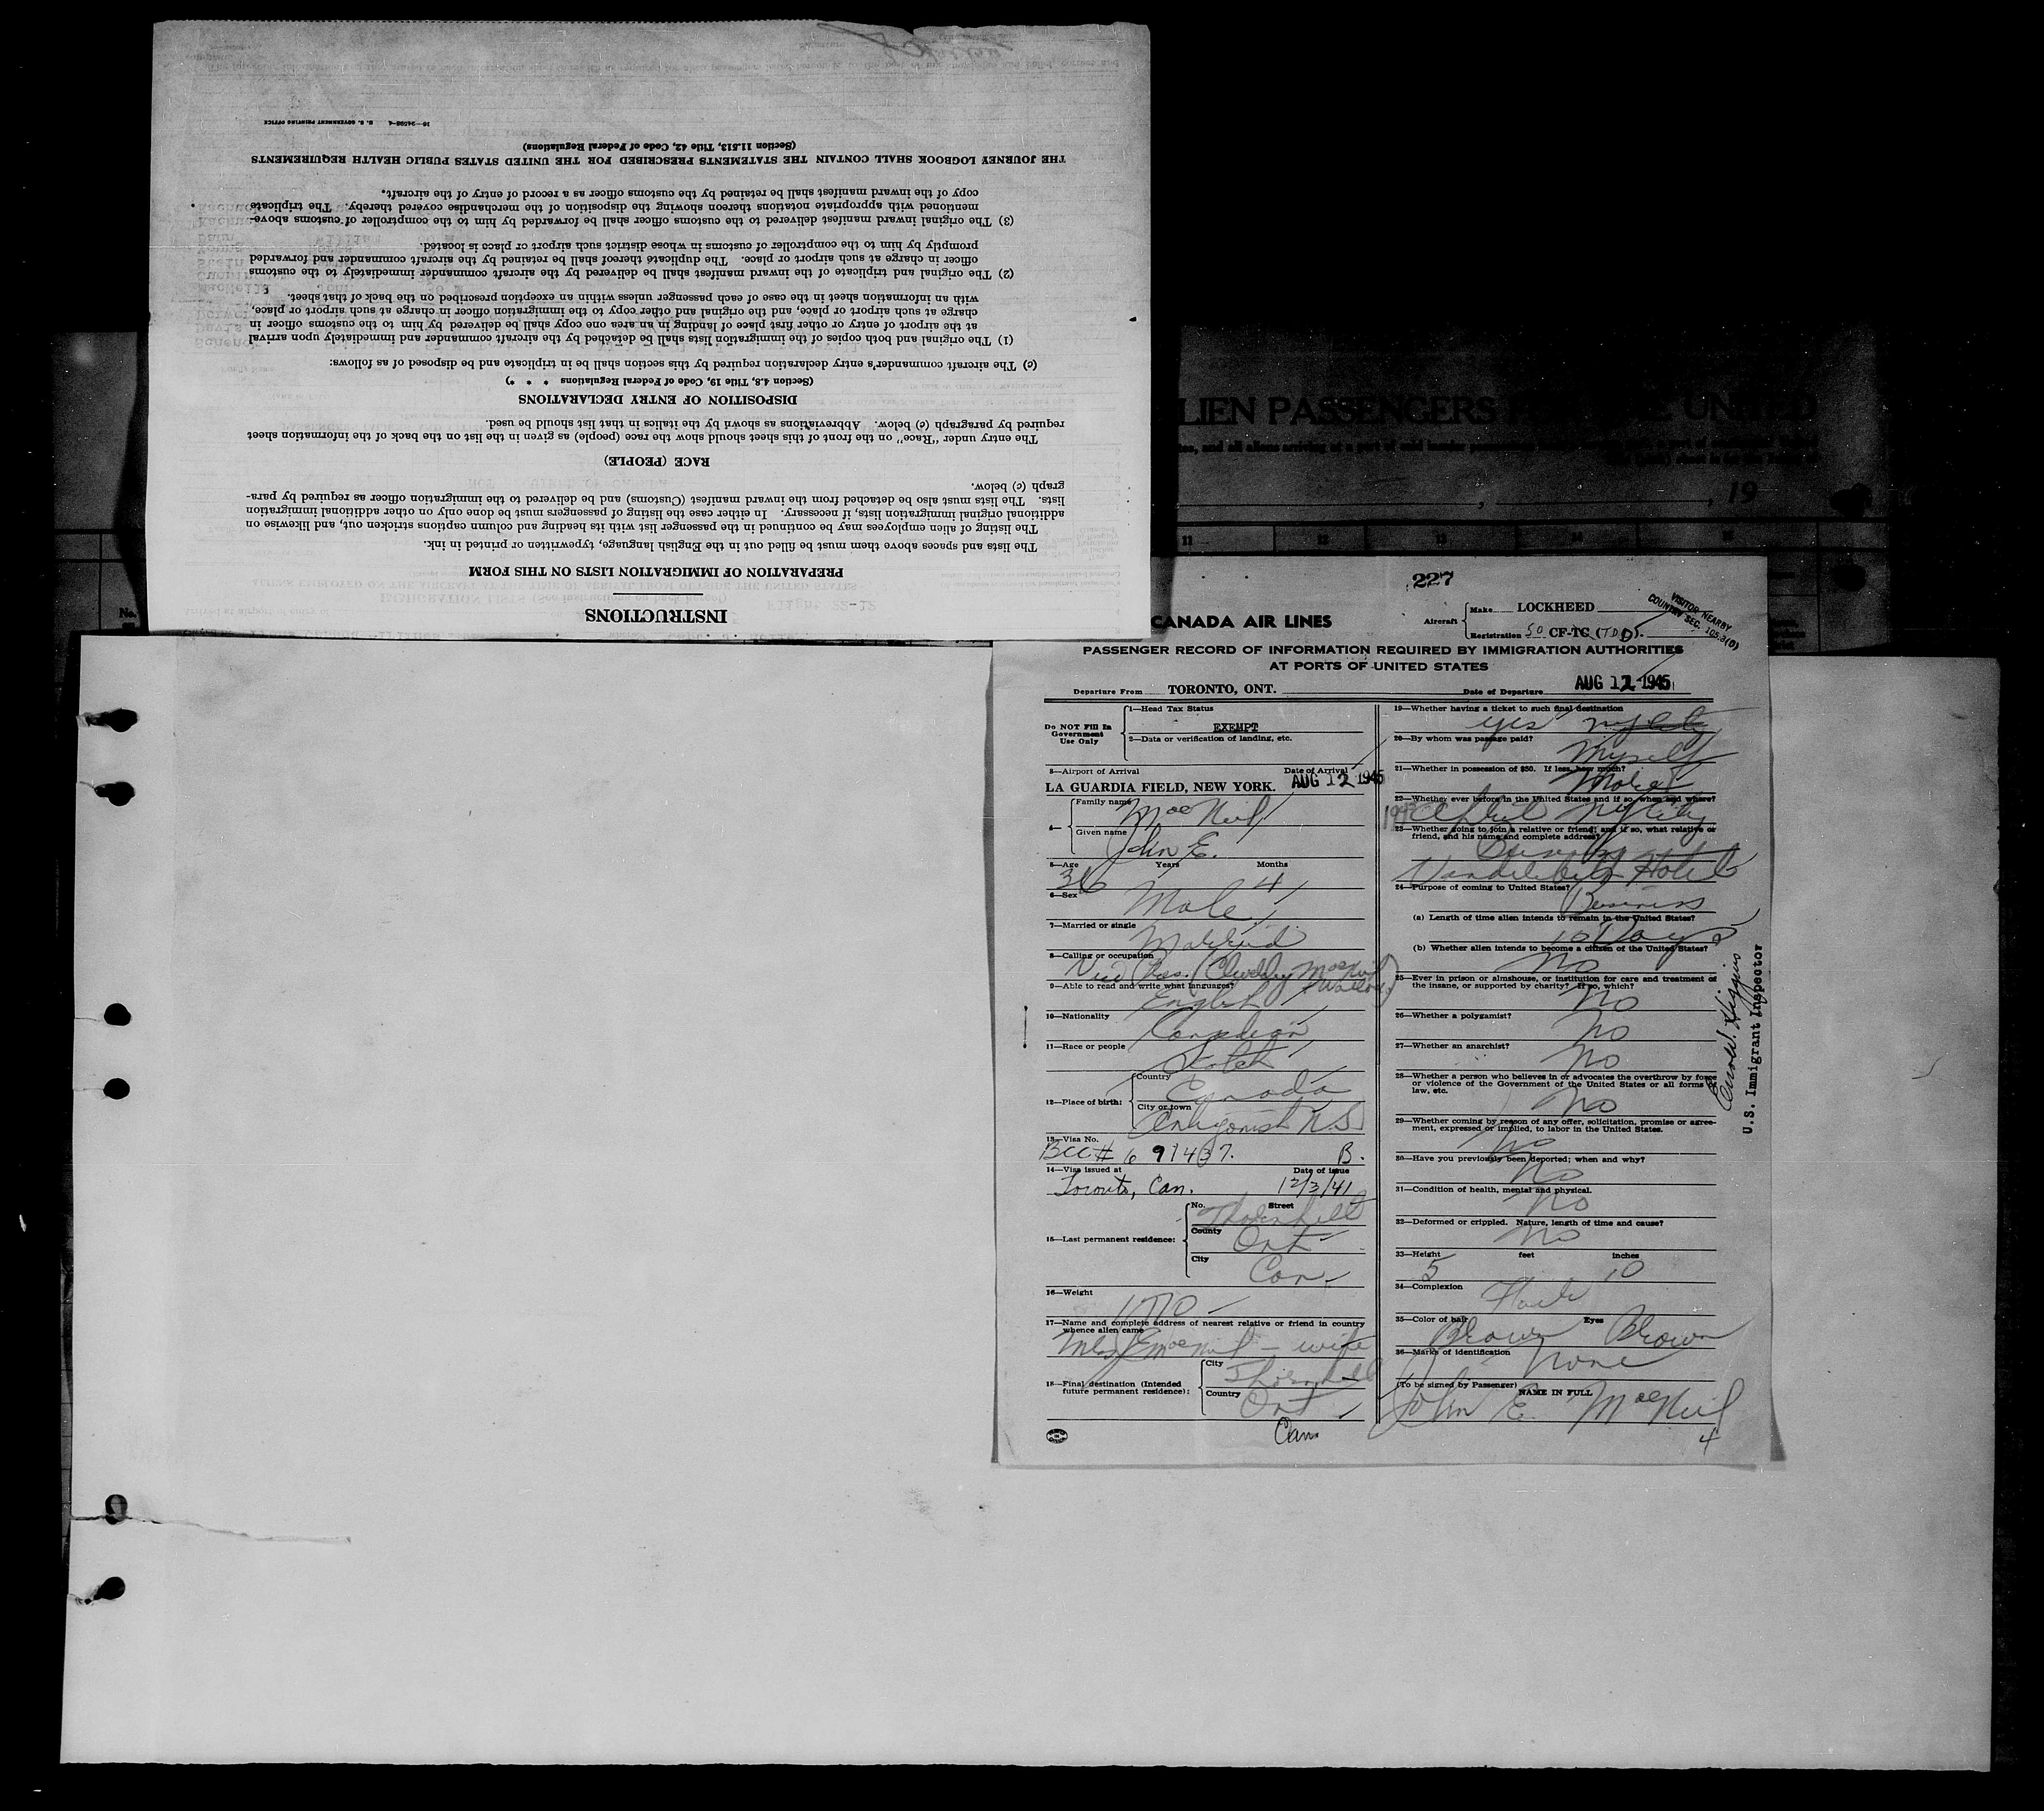 INSTRUCTIONS
PREPARATION OF IMMIGRATION LISTS ON THIS FORM
The lists and spaces above them must be filled out in the English language, typewritten or printed in ink.
The listing of alien employees may be continued in the passenger list with its heading and column captions stricken out, and likewise on
additional original immigration lists, if necessary. In either case the listing of passengers must be done only on other additional immigration
lists. The lists must also be detached from the inward manifest (Customs) and be delivered to the immigration officer as required by para-
graph (c) below.
RACE (PEOPLE)
The entry under "Race" on the front of this sheet should show the race (people) as given in the list on the back of the information sheet
required by paragraph (c) below. Abbreviations as shown by the italics in that list should be used.
DISPOSITION OF ENTRY DECLARATIONS
(Section 4.8, Title 19, Code of Federal Regulations * * *)
(c) The aircraft commander's entry declaration required by this section shall be in triplicate and be disposed of as follows:
(1) The original and both copies of the immigration lists shall be detached by the aircraft commander and immediately upon arrival
at the airport of entry or other first place of landing in an area one copy shall be delivered by him to the customs officer in
charge at such airport or place, and the original and other copy to the immigration officer in charge at such airport or place,
with an information sheet in the case of each passenger unless within an exception prescribed on the back of that sheet.
(2) The original and triplicate of the inward manifest shall be delivered by the aircraft commander immediately to the customs
officer in charge at such airport or place. The duplicate thereof shall be retained by the aircraft commander and forwarded
promptly by him to the comptroller of customs in whose district such airport or place is located.
(3) The original inward manifest delivered to the customs officer shall be forwarded by him to the comptroller of customs above-
mentioned with appropriate notations thereon showing the disposition of the merchandise covered thereby. The triplicate
copy of the inward manifest shall be retained by the customs officer as a record of entry of the aircraft.
THE JOURNEY LOGBOOK SHALL CONTAIN THE STATEMENTS PRESCRIBED FOR THE UNITED STATES PUBLIC HEALTH REQUIREMENTS
(Section 11.513, Title 42, Code of Federal Regulations)
16—24598-4 U. S. GOVERNMENT PRINTING OFFICE
LIEN PASSENGERS UNITED
and all aliens arriving at a port of
, 19
11 12 13 14 15
No.
227
CANADA AIR LINES
Aircraft
Make LOCKHEED
Registration 50 CF-TC (TDD).
VISITOR NEARBY
COUNTRY SEC. 105.3(B)
PASSENGER RECORD OF INFORMATION REQUIRED BY IMMIGRATION AUTHORITIES
AT PORTS OF UNITED STATES
Departure From TORONTO, ONT. Date of Departure AUG 12 1945
Do NOT Fill In
Government
Use Only
1—Head Tax Status
EXEMPT
2—Data or verification of landing, etc.
3—Airport of Arrival Date of Arrival
LA GUARDIA FIELD, NEW YORK. AUG 12 1945
4—
Family name MacNeil
Given name John E.
5—Age Years Months
36 4
6—Sex Male
7—Married or single Married
8—Calling or occupation
Vice Pres.
9—Able to read and write what languages?
English
10—Nationality
Canadian
11—Race or people
Scotch
12—Place of birth:
Country Canada
City or town
Antigonish N.S.
13—Visa No.
BCC # 691437. B.
14—Visa issued at Date of issue
Toronto, Can. 12/3/41
15—Last permanent residence:
No. Street
Thornhill
County Ont
City Can
16—Weight
170
17—Name and complete address of nearest relative or friend in country
whence alien came
Mrs J E MacNeil – wife
18—Final destination (Intended
future permanent residence):
City Thornhill
Country Ont
Can
19—Whether having a ticket to such final destination
yes
20—By whom was passage paid?
Myself
21—Whether in possession of $50. If less, how much?
More
22—Whether ever before in the United States and if so, when and where?
April NY City
23—Whether going to join a relative or friend; and if so, what relative or
friend, and his name and complete address?
Vanderbilt Hotel
24—Purpose of coming to United States?
Business
(a) Length of time alien intends to remain in the United States?
10 Days
(b) Whether alien intends to become a citizen of the United States?
No
25—Ever in prison or almshouse, or institution for care and treatment of
the insane, or supported by charity? If so, which?
No
26—Whether a polygamist?
No
27—Whether an anarchist?
No
28—Whether a person who believes in or advocates the overthrow by force
or violence of the Government of the United States or all forms of
law, etc.
No
29—Whether coming by reason of any offer, solicitation, promise or agree-
ment, expressed or implied, to labor in the United States.
No
30—Have you previously been deported; when and why?
No
31—Condition of health, mental and physical.
No
32—Deformed or crippled. Nature, length of time and cause?
No
33—Height feet inches
5 10
34—Complexion
35—Color of hair Eyes
Brown Brown
36—Marks of identification
None
(To be signed by Passenger) NAME IN FULL
John E. MacNeil
4
Higgins
U.S. Immigrant Inspector